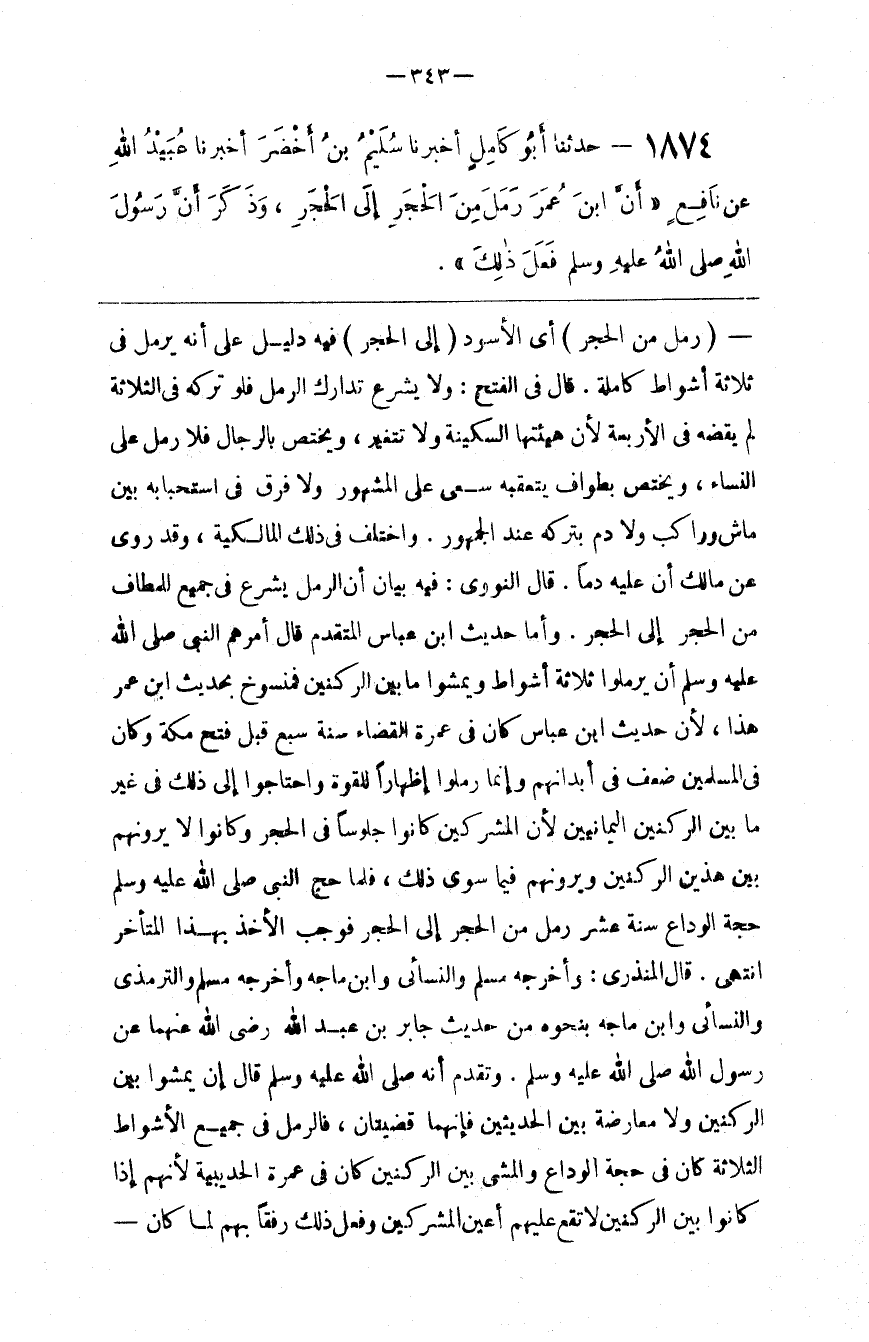 —٣٤٣—
١٨٧٤ — حدثنا أَبُو كَامِلٍ أخبرنا سُلَيْمُ بنُ أَخْضَرَ أخبرنا عُبَيْدُ اللهِ
عن نَافِعٍ « أَنَّ ابنَ عُمَرَ رَمَلَ مِنَ الْحَجَرِ إِلَى الْحَجَرِ ، وَذَكَرَ أَنَّ رَسُولَ
اللهِ صلى اللهُ عليهِ وسلم فَعَلَ ذٰلِكَ » .
— ( رمل من الحجر ) أى الأسود ( إلى الحجر ) فيه دليـل على أنه يرمل فى
ثلاثة أشواط كاملة . قال فى الفتح : ولا يشرع تدارك الرمل فلو تركه فى الثلاثة
لم يقضه فى الأربعة لأن هيئتها السكينة ولا تتغير ، ويختص بالرجال فلا رمل على
النساء ، ويختص بطواف يتعقبه سـعى على المشهور ولا فرق فى استحبابه بين
ماش وراكب ولا دم بتركه عند الجمهور . واختلف فى ذلك المالـكية ، وقد روى
عن مالك أن عليه دماً . قال النووى : فيه بيان أن الرمل يشرع فى جميع المطاف
من الحجر إلى الحجر . وأما حديث ابن عباس المتقدم قال أمرهم النبى صلى الله
عليه وسلم أن يرملوا ثلاثة أشواط ويمشوا ما بين الركنين فمنسوخ بحديث ابن عمر
هذا ، لأن حديث ابن عباس كان فى عمرة القضاء سنة سبع قبل فتح مكة وكان
فى المسلمين ضعف فى أبدانهم وإنما رملوا إظهاراً للقوة واحتاجوا إلى ذلك فى غير
ما بين الركنين اليمانيين لأن المشركين كانوا جلوساً فى الحجر وكانوا لا يرونهم
بين هذين الركنين ويرونهم فيا سوى ذلك ، فلما حج النبى صلى الله عليه وسلم
حجة الوداع سنة عشر رمل من الحجر إلى الحجر فوجب الأخذ بهـذا المتأخر
انتهى . قال المنذرى : وأخرجه مسلم والنسائى وابن ماجه وأخرجه مسلم والترمذى
والنسائى وابن ماجه بنحوه من حديث جابر بن عبـد الله رضى الله عنهما عن
رسول الله صلى الله عليه وسلم . وتقدم أنه صلى الله عليه وسلم قال إن يمشوا بين
الركنين ولا معارضة بين الحديثين فإنهما قضيتان ، فالرمل فى جميـع الأشواط
الثلاثة كان فى حجة الوداع والمشى بين الركنين كان فى عمرة الحديبية لأنهم إذا
كانوا بين الركنين لا تقع عليهم أعين المشركين وفعل ذلك رفقاً بهم لمـا كان —